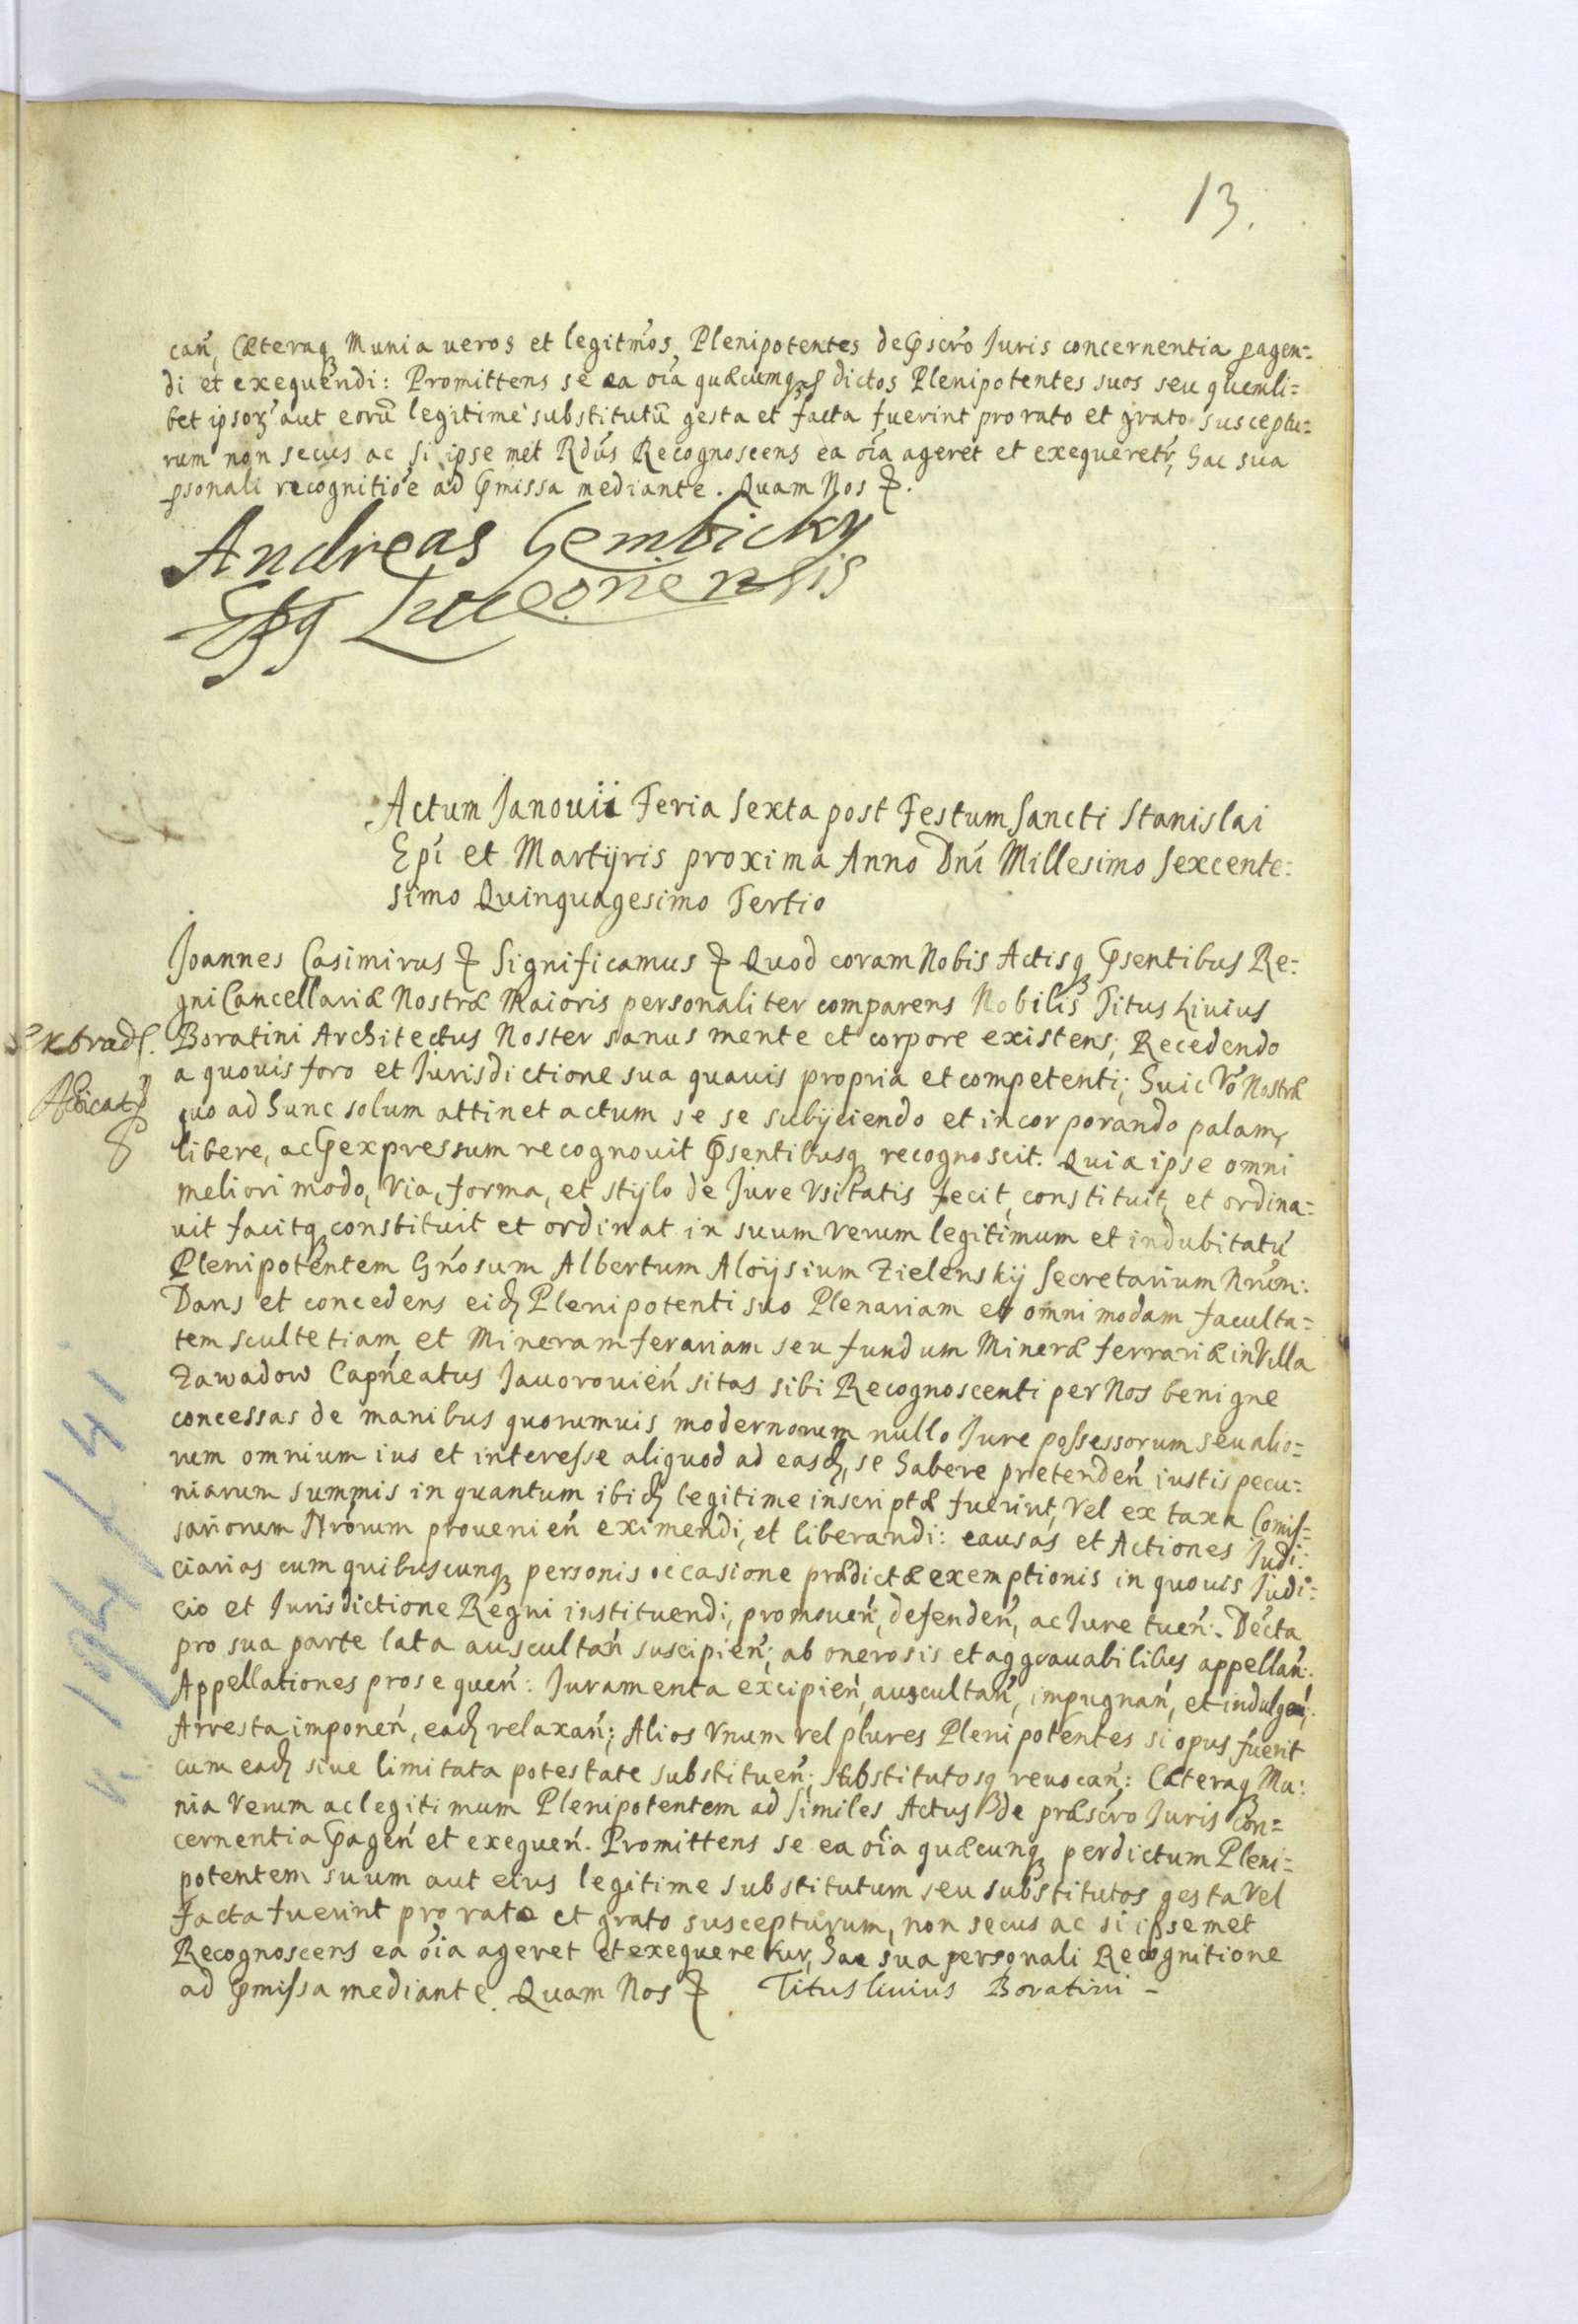 13.
cań, Cæteraq₃ Munia ueros et legitm̃os Plenipotentes de p̃scr̃o Iuris concernentia pagen=
di et exequendi: Promittens se ea oĩa quæcumq₃ p dictos Plenipotentes suos seu quemli=
bet ipsoꝝ aut eorũ legitime substitutũ gesta et facta fuerint pro rato et grato susceptu=
rum non secus ac si ipse met Rdũs Recognoscens ea oĩa ageret et exequeretr̃, hac sua
psonali recognitiõe ad p̃missa mediante. Quam Nos ꝑ.
Andreas Gembicky
Ep̃s Luceoriensis
Actum Janouii Feria Sexta post Festum Sancti Stanislai
Ep̃i et Martÿris proxima Anno Dn̄i Millesimo Sexcente=
simo Quinquagesimo Tertio
Joannes Casimirus ꝑ Significamus ꝑ Quod coram Nobis Actisq₃ p̃sentibus Re=
gni Cancellariæ Nostræ Maioris personaliter comparens Nobilis Titus Liuius
Extrad.
Boratini Architectus Noster sanus mente et corpore existens, Recedendo
a quouis foro et Iurisdictione sua quauis propria et competenti; huic Võ Nostræ
quo ad hunc solum attinet actum se se subijciendo et incorporando palam,
libere, ac p expressum recognouit p̃sentibusq₃ recognoscit. Quia ipse omni
meliori modo, Via, forma, et stylo de Iure Vsitatis fecit, constituit, et ordina=
uit facitq₃ constituit et ordinat in suum verum legitimum et indubitatũ
Plenipotentem Gn̄osum Albertum Aloÿsium Zielenskij Secretarium Nrũm:
Dans et concedens eid. Plenipotenti suo Plenariam et omnimodam faculta=
tem scultetiam et Mineram ferariam seu fundum Mineræ ferrariæ in Villa
Zawadow Capńeatus Jauorouień sitas sibi Recognoscenti per Nos benigne
concessas de manibus quorumuis modernorum nullo Iure possessorum seu alio=
rum omnium ius et interesse aliquod ad easd. se habere pretendeń iustis pecu=
niarum summis in quantum ibid. legitime inscriptæ fuerint, vel ex taxa Comis=
sariorum Nrõrum prouenień eximendi, et liberandi: causas et Actiones Iudi=
ciarias cum quibuscunq₃ personis occasione prædictæ exemptionis in quouis Iudi=
cio et Iurisdictione Regni instituendi, promoueń, defendeń, ac Iure tueń: Dec̃ta
pro sua parte lata auscultań suscipień; ab onerosis et aggrauabilibus appellań:
Appellationes prosequeń: Iuramenta excipień, auscultań, impugnań, et indulgeń,
Arresta imponeń, ead. relaxań; Alios Vnum vel plures Plenipotentes si opus fuerit
cum ead. siue limitata potestate substitueń; substitutosq₃ reuocań: Cæteraq₃ Mu=
nia verum ac legitimum Plenipotentem ad similes Actus de præscr̃o Iuris con=
cernentia p̃ageń et exequeń. Promittens se ea oĩa quæcunq₃ per dictum Pleni=
potentem suum aut eius legitime substitutum seu substitutos gesta vel
facta fuerint pro rato et grato suscepturum, non secus ac si ipsemet
Recognoscens ea oĩa ageret et exequeretur, hac sua personali Recognitione
ad p̃missa mediante. Quam Nos ꝑ Titus liuius Boratini -